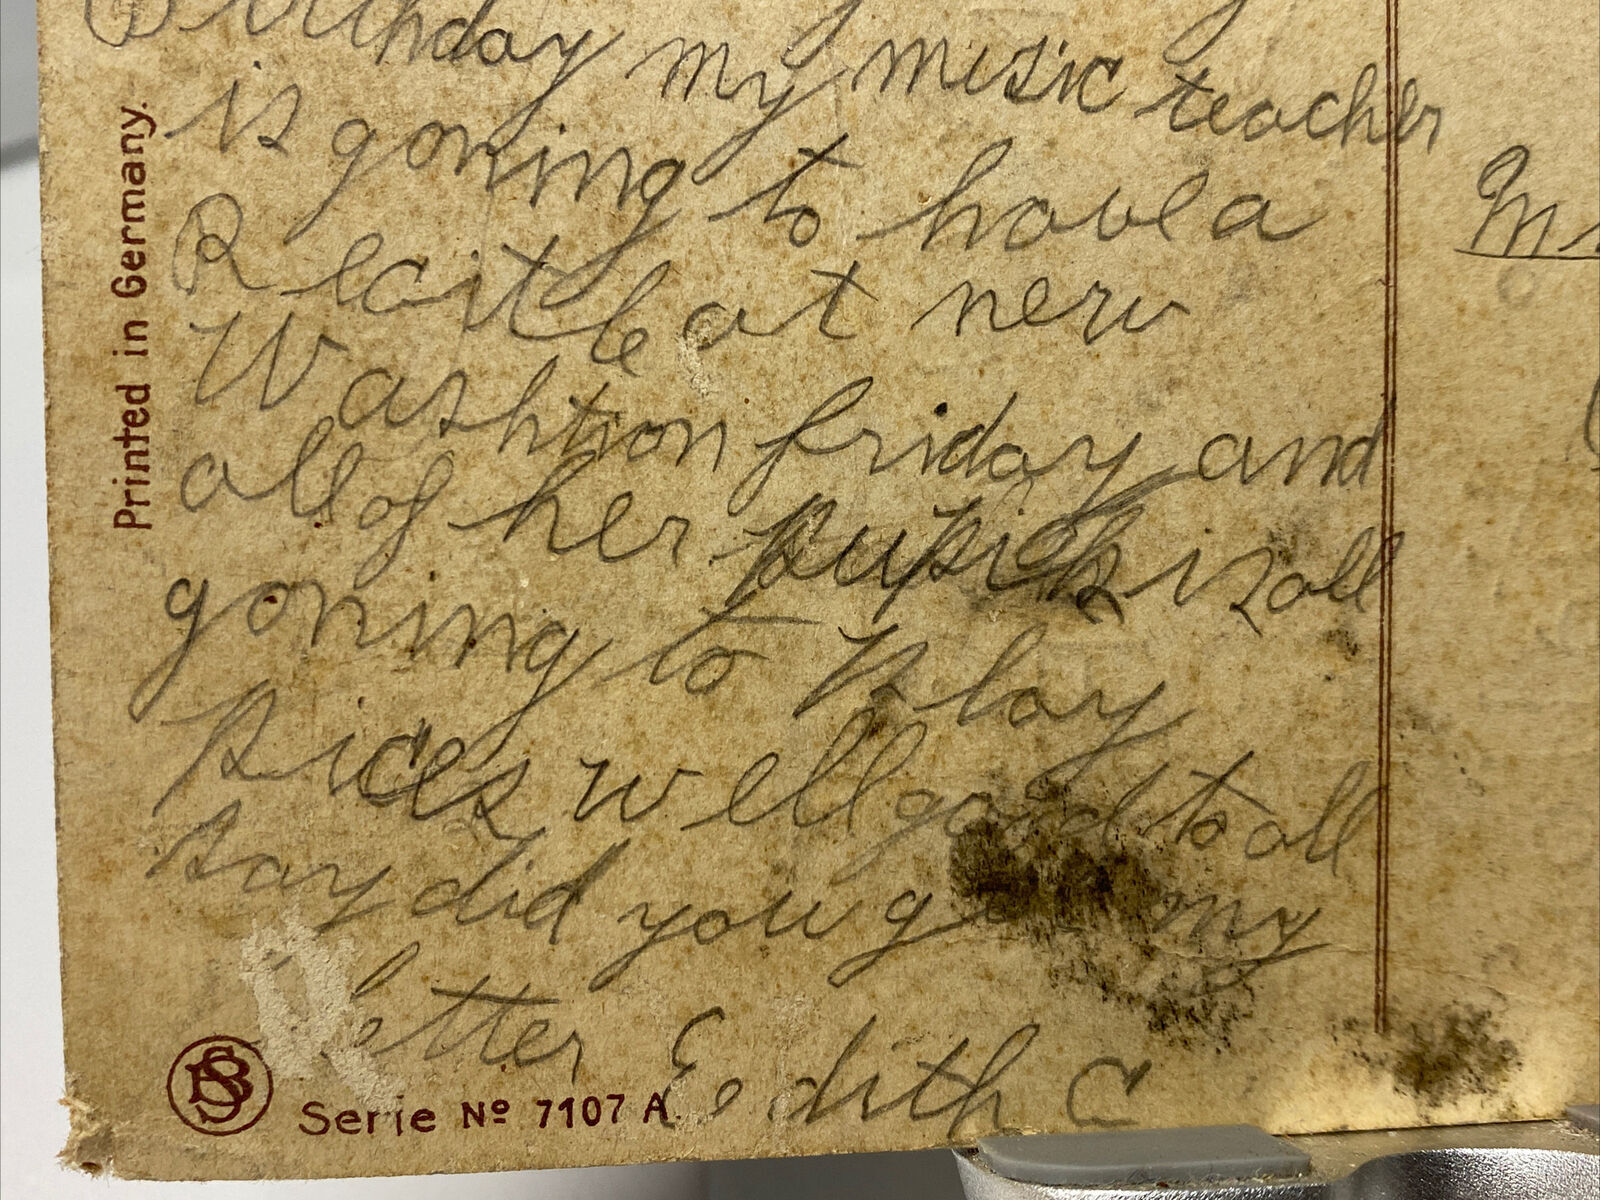 Birthday my music teacher
is goning to have a
Recitle at new
Washtion friday and
all of her pupils is all
goning to play
Pices well good to all
say did you get my
letter Edith C
Printed in Germany.
BS
Serie No 7107 A.